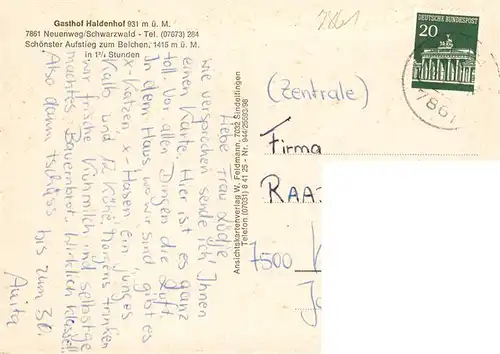 Gasthof Haldenhof 931 m ü. M.
7861 Neuenweg/Schwarzwald - Tel. (07673) 284
Schönster Aufstieg zum Belchen, 1415 m ü. M.
in 1¾ Stunden
7861
DEUTSCHE BUNDESPOST
20
7861
(Zentrale)
Firma
RAA
7500 K
Ansichtskartenverlag W. Feldmann, 7032 Sindelfingen
Telefon (07031) 8 41 25 - Nr. 944/25593/98
Liebe Frau
wie versprochen sende ich Ihnen
einen Karte. Hier ist es ganz
toll. Vor allen Dingen die Luft.
In dem Haus wo wir sind gibt es
x-Katzen, x-Hasen ein junges
Kalb und 12 Kühe. Morgens trinken
wir frische Kuhmilch und selbstge
machtes Bauernbrot. Wirklich klasse!!
Also dann tschüss bis zum 30.
Anita